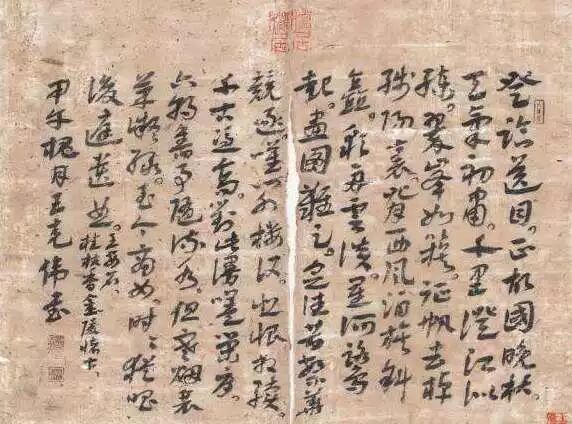 登臨送目。正故國晚秋
天氣初肅。千里澄江似
練。翠峰如簇。征帆去棹
殘陽裏。背西風酒旗斜
矗。彩舟雲淡。星河鷺
起。畫圖難足。念往昔繁華
競逐。嘆門外樓頭。悲恨相續。
千古憑高。對此漫嗟榮辱。
六朝舊事隨流水。但寒煙衰
草凝綠。至今商女。時時猶唱
後庭遺曲。
王安石、
桂枝香金陵懷古。
甲午槐月王克偉書